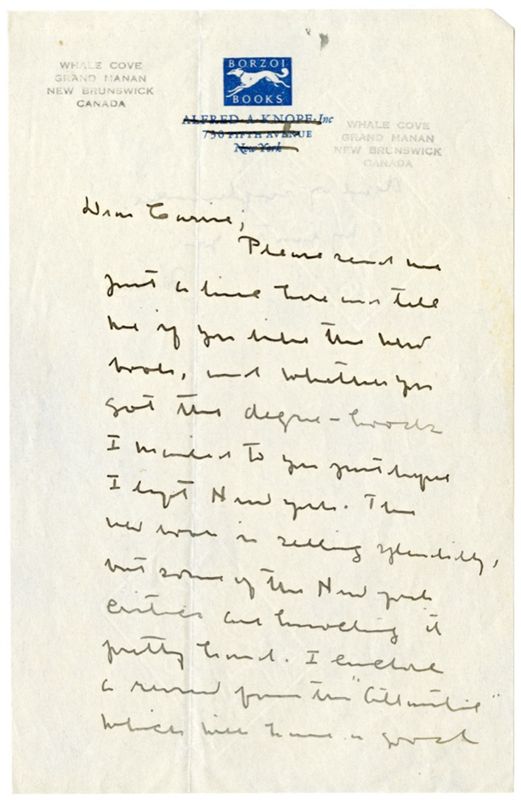 WHALE COVE
GRAND MANAN
NEW BRUNSWICK
CANADA
BORZOI
BOOKS
ALFRED·A·KNOPF·Inc
730 FIFTH AVENUE
New York
WHALE COVE
GRAND MANAN
NEW BRUNSWICK
CANADA
Dear Carrie;
Please send me
just a line here and tell
me if you like the new
book, and whether you
got the degree-hoods
I mailed to you just before
I left New York. The
new book is selling splendidly,
but some of the New York
critics are knocking it
pretty hard. I enclose
a review from the "Atlantic"
which will have a good